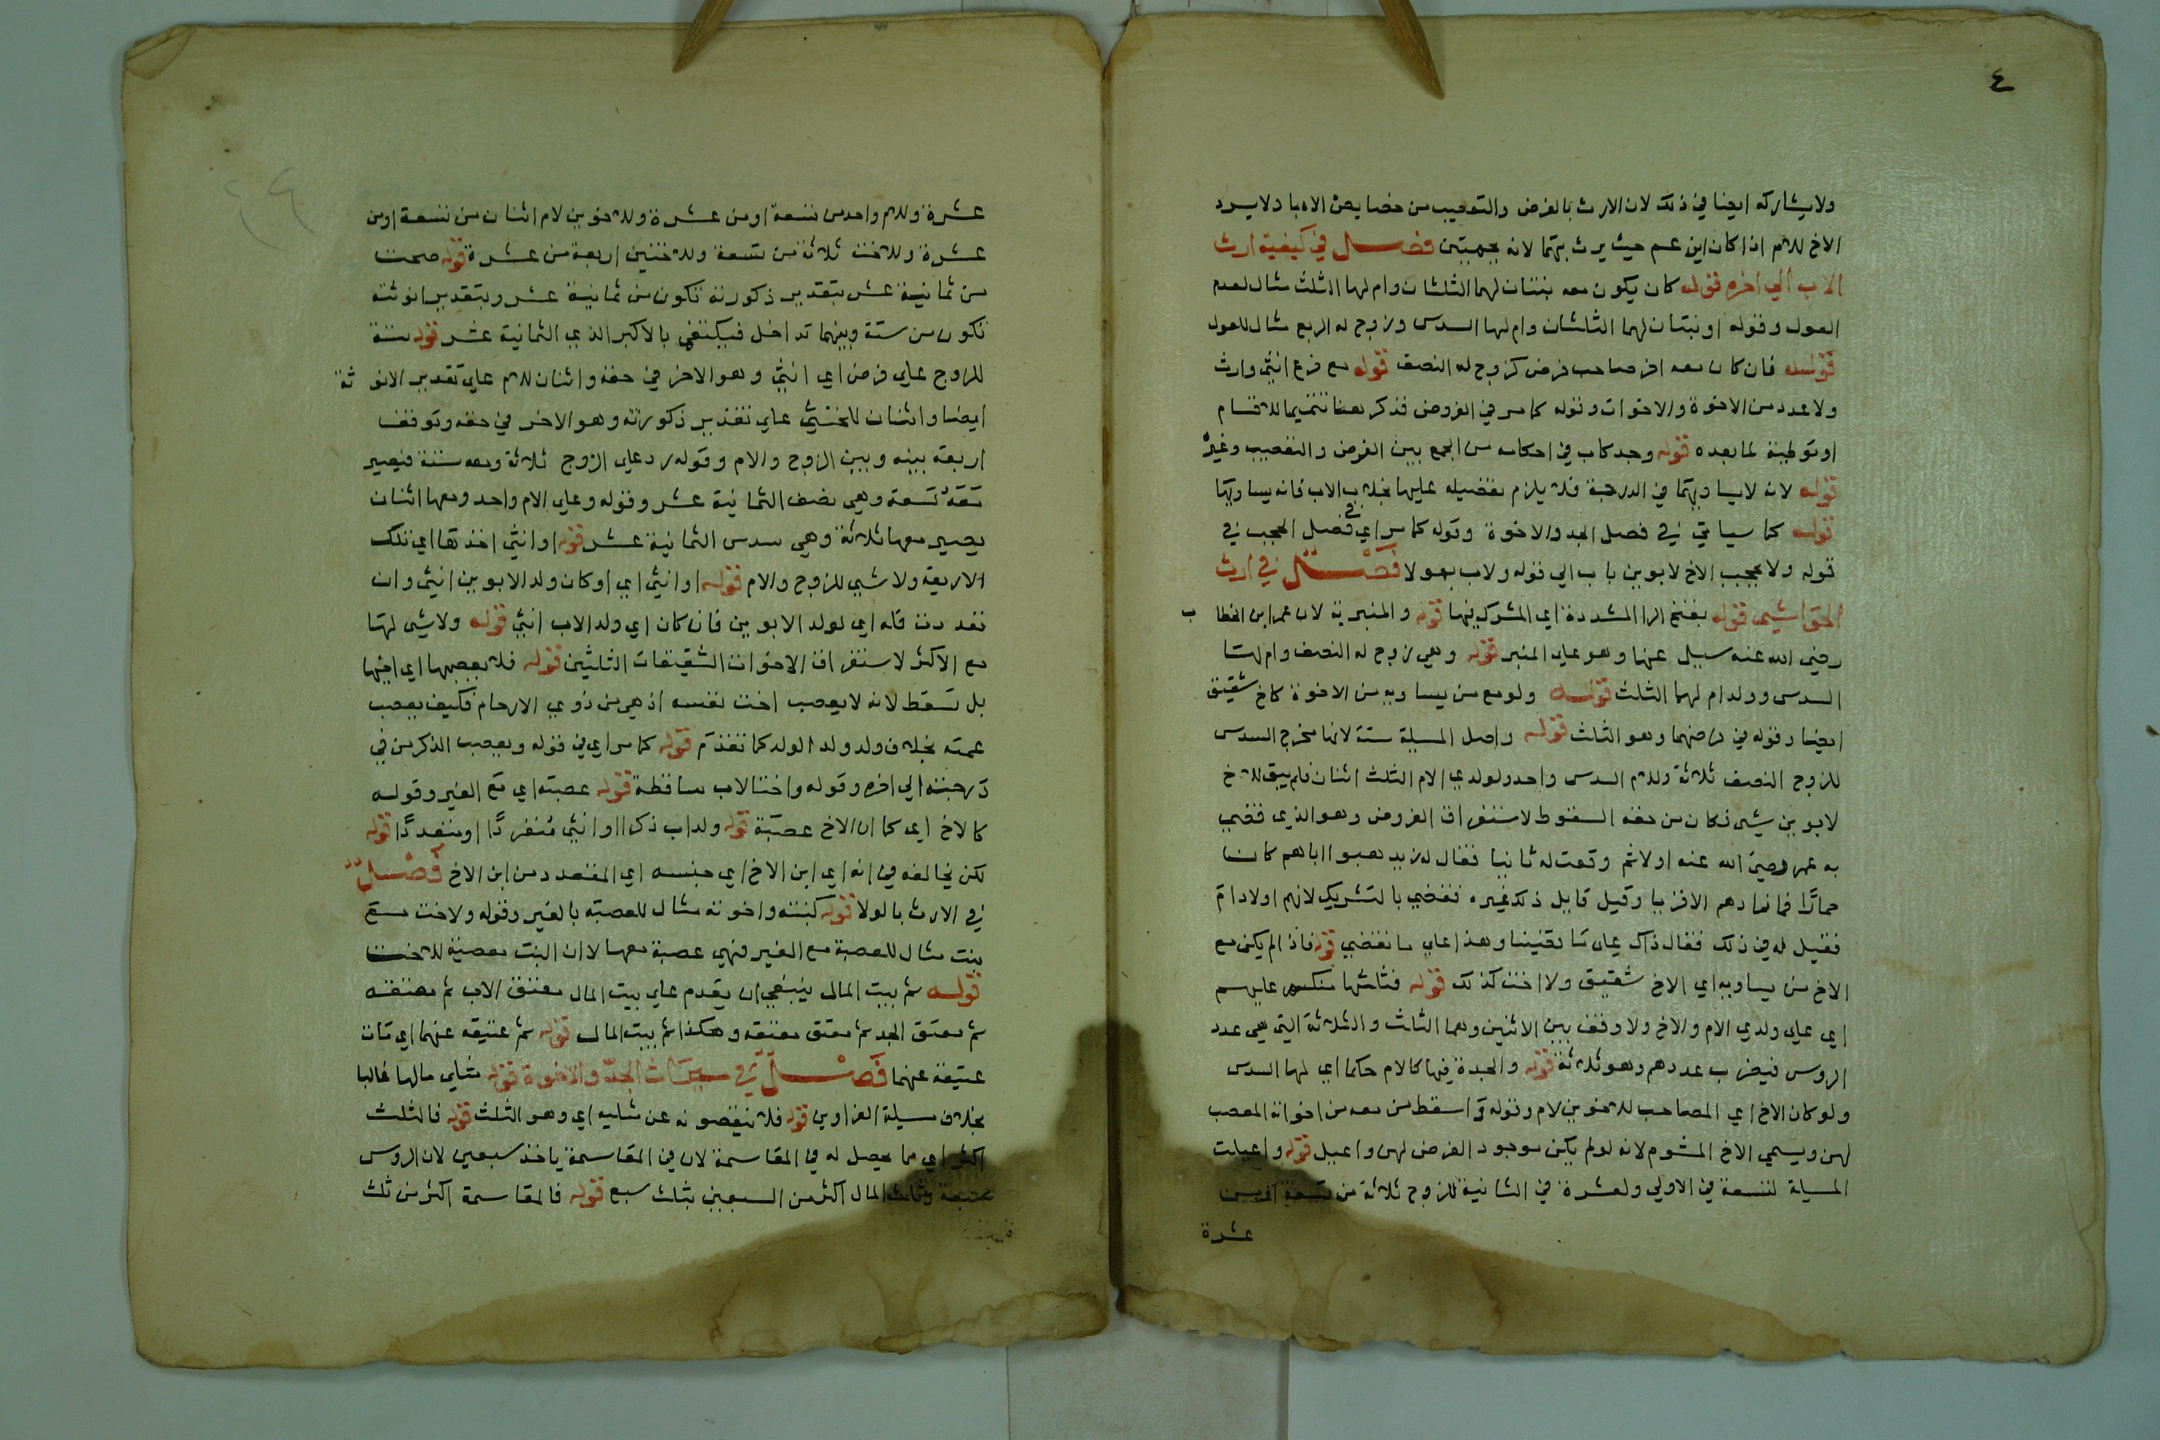 ٤
ولا يشاركه ايضا في ذلك لان الارث بالفرض والتعصيب من خصايص الاه با ولا يرد
الاخ للام اذا كان ابن عم حيث يرث بهما لانه بجهتين فصل في كيفية ارث
الاب الي اخره قوله كان يكون معه بنتان لهما الثلثان وام لها الثلث مثال لعدم
العول وقوله او بنتان لهما الثلثان وام لها السدس وزوج له الربع مثال للعول
قوله فان كان معه اخر صاحب فرض كزوج له النصف قوله مع فرع انثي وارث
ولا عدد من الاخوة والاخوات وقوله كما مر في الفروض فذكر هنا تتميما للاقسام
او توطية لما بعده قوله وجد كاب في احكامه من الجمع بين الفرض والتعصيب وغيره
قوله لانه لا يساويهما في الدرجة فلا يلزم تفضيله عليها بخلاف الاب فانه يساويها
قوله كما سياتي في فصل الجد والاخوة وقوله كما مر اي في فصل الحجب في
قوله ولا يحجب الاخ لابوين باب الي قوله ولاب بهولا فصل في ارث
الحواشي قوله بفتح الرا المشددة اي المشرك فيها قوله والمنبرية لان عمر ابن الخطا ب
رضي الله عنه سيل عنها وهو علي المنبر قوله وهي زوج له النصف وام لها
السدس وولد ام لهما الثلث قوله ولو مع من يساويه من الاخوة كاخ شقيق
ايضا وقوله في فرضهما وهو الثلث قوله واصل المسيلة ستة لانها مخرج السدس
للزوج النصف ثلاثة وللام السدس واحد ولولدي الام الثلث اثنان فلم يبق للاخ
لابوين شي فكان من حقه السقوط لاستغراق الفروض وهو الذي قضي
به عمر رضي الله عنه اولا ثم وقعت له ثانيا فقال له زيد هبوا اباهم كان
حمارًا فما زادهم الا قربا وقيل قايل ذلك غيره فقضي بالتشريك لانهم اولاد ام
فقيل له في ذلك فقال ذاك علي ما قضينا وهذا علي ما نقضي قوله فاذا لم يكن مع
الاخ من يساويه اي الاخ شقيق ولا اخت كذلك قوله فثلثها منكسر عليهم
اي علي ولدي الام والاخ ولا وفق بين الاثنين وهما الثلث والثلاثة التي هي عدد
الروس فيضرب عددهم وهو ثلاثة قوله والجدة فيها كالام حكما اي لها السدس
ولو كان الاخ اي المصاحب للاخوين لام وقوله واسقط من معه من اخواته المعصب
لهن ويسمي الاخ المشوم لانه لو لم يكن موجود الفرض لهن واعيل قوله واعيلت
المسيلة لتسعة في الاولي ولعشرة في الثانية للزوج ثلاثة من تسعة او من
عشرة
عشرة وللام واحد من تسعة او من عشرة وللاخوين لام اثنان من تسعة او من
عشرة وللاخت ثلاثة من تسعة وللاختين اربعة من عشرة قوله صحت
من ثمانية عشر بتقدير ذكورته تكون من ثمانية عشر وبتقدير انوثته
تكون من ستة وبينهما تداخل فيكتفي بالاكبر الذي الثمانية عشر قوله ستة
للزوج علي فرض اي انثي وهو الاخر في حقه واثنان للام علي تقدير الانو ثة
ايضا واثنان للخنثي علي تقدير ذكورته وهو الاخر في حقه وتوقف
اربعة بينه وبين الزوج والام وقوله رد علي الزوج ثلاثة ومعه ستة فيصير
معه تسعة وهي نصف الثمانية عشر وقوله وعلي الام واحد ومعها اثنان
يصير معها ثلاثة وهي سدس الثمانية عشر قوله او انثي اخذتها اي تلك
الاربعة ولا شي للزوج والام قوله او انثي اي او كان ولد الابوين انثي وان
تعددت قله اي لولد الابوين فان كان اي ولد الاب انثي قوله ولا شي لهما
مع الاكثر لاستغراق الاخوات الشقيقات الثلثين قوله فلا يعصبها اي اختها
بل تسقط لانه لا يعصب اخت نفسه اذ هي من ذوي الارحام فكيف يعصب
عمته بخلاف ولد ولد الولد كما تقدم قوله كما مر اي في قوله ويعصب الذكر من في
درجته الي اخره وقوله واختا لاب ساقطة قوله عصبته اي مع الغير وقوله
كالاخ اي كما ان الاخ عصبة قوله ولد اب ذكرا او انثي منفردًا او متعددًا قوله
لكن يخالفه في انه اي ابن الاخ اي جنسه اي المتعدد من ابن الاخ فصل
في الارث بالولا قوله كبنته واخوته مثال للعصبة بالغير وقوله ولاخت مع
بنت مثال للعصبة مع الغير فهي عصبة معها لا ان البنت معصبة للاخت
قوله ثم بيت المال ينبغي ان يقدم علي بيت المال معتق الاب ثم معتقه
ثم معتق الجد ثم معتق معتقه وهكذا ثم بيت المال قوله ثم عتيقه عنهما اي مات
عتيقه عنهما فصل في ميراث الجد والاخوة قوله مثلي مالها غالبا
بخلاف مسيلة الغراوين قوله فلا ينقصونه عن مثليه اي وهو الثلث قوله فالثلث
اكثر اي مما يحصل له في المقاسمة لان في المقاسمة ياخذ سبعين لان الروس
سبعة وثلث المال اكثر من السبعين بثلث سبع قوله فالمقاسمة اكثر من ثلث